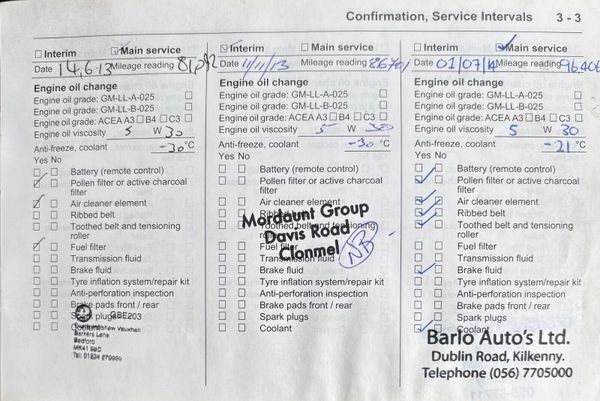 Confirmation, Service Intervals 3 - 3
Interim Main service
Date 14,6,13 Mileage reading
Engine oil change
Engine oil grade: GM-LL-A-025
Engine oil grade: GM-LL-B-025
Engine oil grade: ACEA A3 B4 C3
Engine oil viscosity 5 W 30
Anti-freeze, coolant -30 °C
Yes No
Battery (remote control)
Pollen filter or active charcoal
filter
Air cleaner element
Ribbed belt
Toothed belt and tensioning
roller
Fuel filter
Transmission fluid
Brake fluid
Tyre inflation system/repair kit
Anti-perforation inspection
Brake pads front / rear
Spark plugs
GBE203
Vauxhall
Barkers Lane
Bedford
MK41 9BD
Interim Main service
Date 11/11/13 Mileage reading 86701
Engine oil change
Engine oil grade: GM-LL-A-025
Engine oil grade: GM-LL-B-025
Engine oil grade: ACEA A3 B4 C3
Engine oil viscosity 5 W
Anti-freeze, coolant -30 °C
Yes No
Battery (remote control)
Pollen filter or active charcoal
filter
Air cleaner element
Ribbed belt
Toothed belt and tensioning
roller
Mordaunt Group
Davis Road
Clonmel
NB
Fuel filter
Transmission fluid
Brake fluid
Tyre inflation system/repair kit
Anti-perforation inspection
Brake pads front / rear
Spark plugs
Coolant
Interim Main service
Date 01/07/14 Mileage reading 96406
Engine oil change
Engine oil grade: GM-LL-A-025
Engine oil grade: GM-LL-B-025
Engine oil grade: ACEA A3 B4 C3
Engine oil viscosity 5 W 30
Anti-freeze, coolant -21 °C
Yes No
Battery (remote control)
Pollen filter or active charcoal
filter
Air cleaner element
Ribbed belt
Toothed belt and tensioning
roller
Fuel filter
Transmission fluid
Brake fluid
Tyre inflation system/repair kit
Anti-perforation inspection
Brake pads front / rear
Spark plugs
Coolant
Barlo Auto's Ltd.
Dublin Road, Kilkenny.
Telephone (056) 7705000